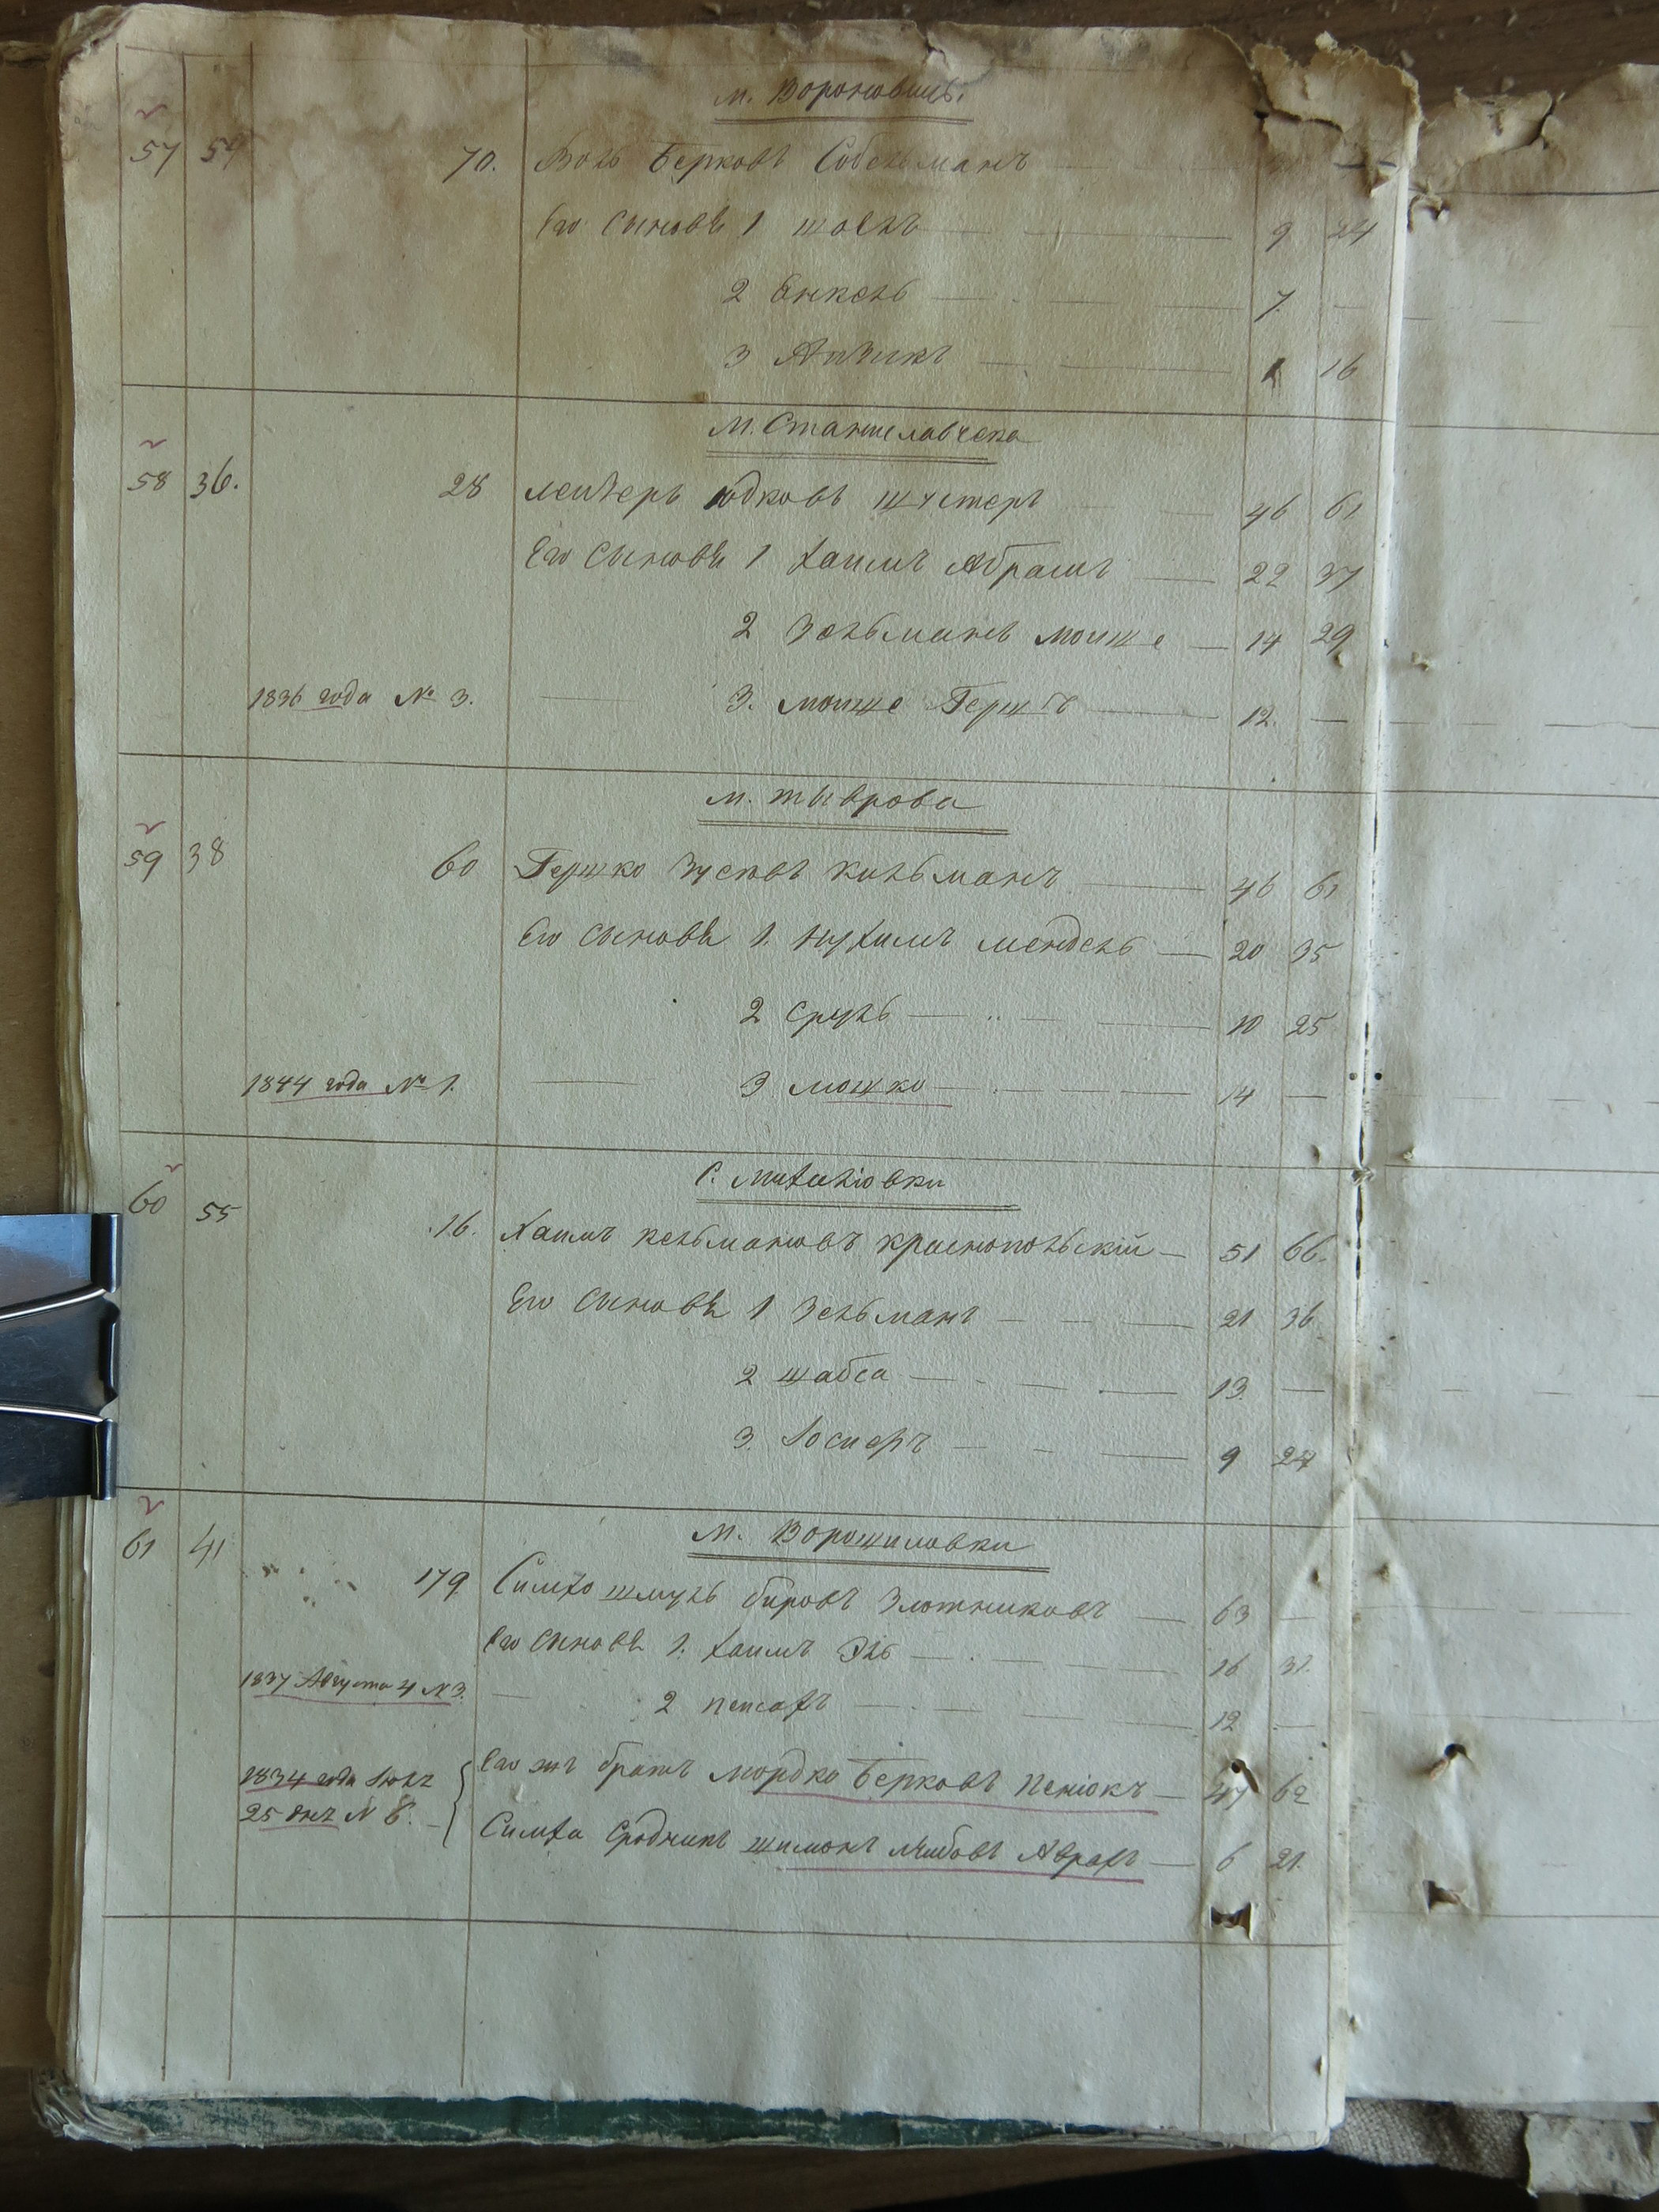 м. Вороновицы.
57 59 70. Волъ Берковъ Собельманъ
Его сыновья 1 шоелъ 9 24
2 Янкель 7. —
3 Айзикъ 1 16
м. Станиславчека
58 36. 28 Лейзеръ юдковъ шустеръ 46 61
Его сыновья 1 хаимъ Абрамъ 22 37
2 Зельманъ мошше 14 29
1836 года № 3. 3. мошше Гершъ 12. —
м. тыврова
59 38 60 Гершко Зусевъ кильманъ 46 61
Его сыновья 1. нухимъ мендель 20 35
2 Сруль 10 25
1844 года № 1. 3 мошко 14 —
С. Михаловки
60 55 16. Хаимъ кельмановъ краснопольскій 51 66.
Его сыновья 1 Зельманъ 21 36
2 шабса 13. —
3. Іосифъ 9 24
м. Ворошиловки
61 41 179 Симхо шмуль бировъ Злотниковъ 63 —
Его сыновья 1. хаимъ Эль 16 31.
1837 Августа 4 № 3. 2 пейсахъ 12 —
1834 года Іюля Его жъ братъ мордко Берковъ Пеніокъ 47 62
25 дня № 8. Симха Сродникъ шимонъ Лейбовъ Аврахъ 6 21.